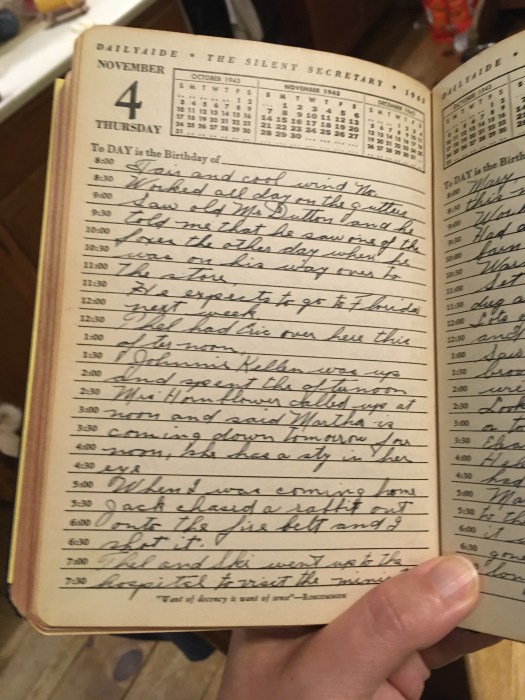 DAILYAIDE • THE SILENT SECRETARY • 1943
NOVEMBER
4
THURSDAY
OCTOBER 1943
S M T W T F S
1 2
3 4 5 6 7 8 9
10 11 12 13 14 15 16
17 18 19 20 21 22 23
24 25 26 27 28 29 30
31
NOVEMBER 1943
S M T W T F S
1 2 3 4 5 6
7 8 9 10 11 12 13
14 15 16 17 18 19 20
21 22 23 24 25 26 27
28 29 30
DECEMBER 1943
To DAY is the Birthday of
8:00 Fair and cool wind No.
8:30 Worked all day on the gutters
9:00 Saw old Mr Dutton and he
9:30 told me that he saw one of the
10:00 foxes the other day when he
10:30 was on his way over to
11:00 the store.
11:30 He expects to go to Florida
12:00 next week
12:30 Thel had Eric over here this
1:00 afternoon
1:30 Johnnie Kellen was up
2:00 and spent the afternoon
2:30 Mrs Hornblower called up at
3:00 noon and said Martha is
3:30 coming down tomorrow fore
4:00 noon, she has a sty in her
4:30 eye
5:00 When I was coming home
5:30 Jack chased a rabbit out
6:00 onto the fire belt and I
6:30 shot it.
7:00 Thel and Ski went up to the
7:30 hospital to visit the
"Want of decency is want of sense"—ROSCOMMON
DAILYAIDE •
OCTOBER 1943
To DAY is the Birth
8:00 Mary
8:30 this
9:00
9:30 Had a
10:00
10:30
11:00 Set
11:30 dug a
12:00
12:30 and
1:00
1:30
2:00
2:30
3:00
3:30
4:00
4:30 had
5:00
5:30
6:00 it
6:30